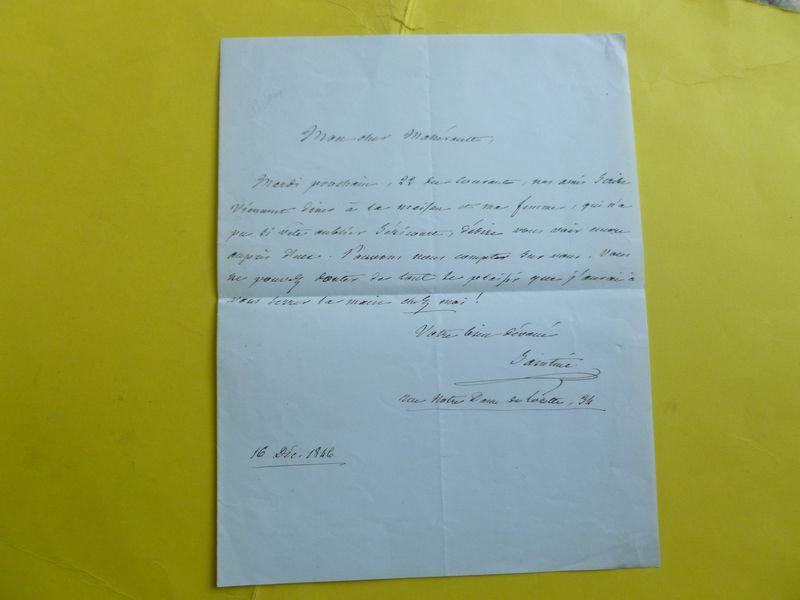 Mon cher Mahérault,
Mardi prochain, 22 du courant, nos amis Scribe
viennent diner à la maison et ma femme, qui n'a
pu si vite oublier Séricourt, désire vous voir encore
auprès d'eux. Pouvons nous compter sur vous. Vous
ne pouvez douter de tout le plaisir que j'aurai à
vous serrer la main chez moi !
Votre bien dévoué
Saintine
rue Notre Dame de Lorette, 34
16 Déc. 1846